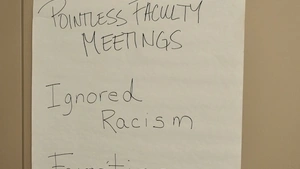 POINTLESS FACULTY
MEETINGS
Ignored
Racism